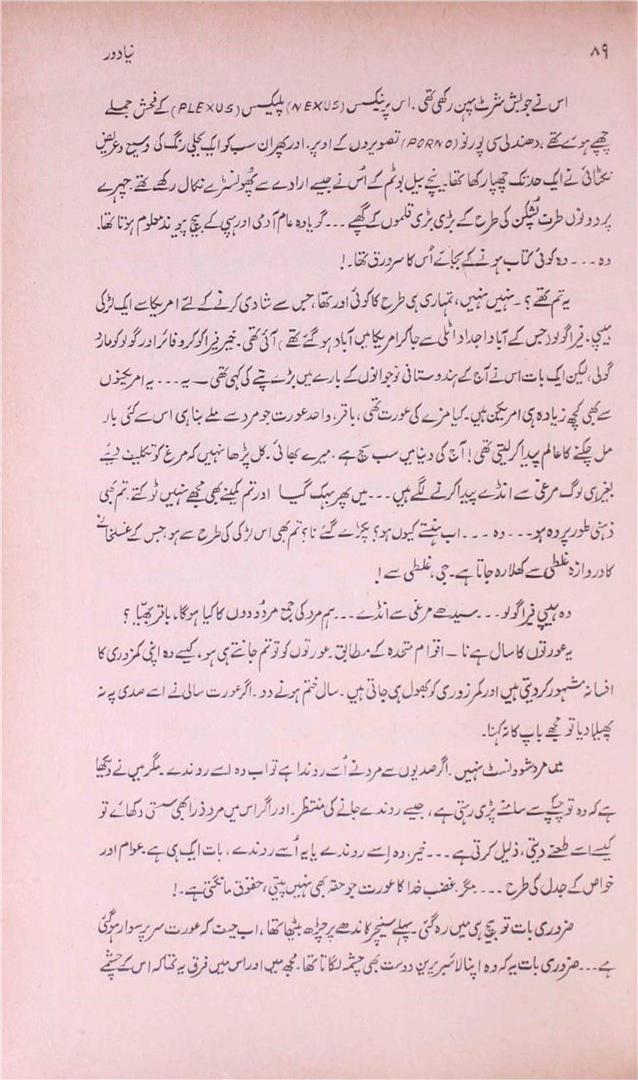 ۸۹
نیا دور
اس نے جو بش شرٹ پہن رکھی تھی۔ اس پر نیکسس (NEXUS) پلیکسس (PLEXUS) کے فحش جملے
چھپے ہوئے تھے، دھندلی سی پورنو (PORNO) تصویروں کے اوپر۔ اور پھر ان سب کو ایک بجلی رنگ کی وسیع و عریض
نکٹائی نے ایک حد تک چھپا رکھا تھا۔ نیچے بیل بوٹم کے اُس نے جیسے ارادے سے پھونسڑے نکال رکھے تھے۔ چہرے
پر دونوں طرف پشکن کی طرح کے بڑی بڑی قلموں کے گچھے --- گویا وہ عام آدمی اور ہپی کے بیچ پیوند معلوم ہوتا تھا۔
وہ --- وہ کوئی کتاب ہونے کے بجائے اُس کا سرورق تھا۔!
یہ تم تھے؟ - نہیں نہیں، تمہاری ہی طرح کا کوئی اور تھا، جس سے شادی کرنے کے لئے امریکا سے ایک لڑکی
ہیپی، فیراگولو (جس کے آباد اجداد اٹلی سے جا کر امریکا میں آباد ہو گئے تھے) آئی تھی۔ خیر فیراگو کرو فائر اور گولو کو مارو
گولی، لیکن ایک بات اس نے آج کے ہندوستانی نوجوانوں کے بارے میں بڑے پتے کی کہی تھی – یہ --- یہ امریکیوں
سے بھی کچھ زیادہ ہی امریکن ہیں۔ کیا مزے کی عورت تھی، باقر، واحد عورت جو مرد سے ملے بنا ہی اس سے کئی بار
مل چکنے کا عالم پیدا کر لیتی تھی! آج کی دنیا میں سب سچ ہے۔ میرے بھائی۔ کل پڑھا نہیں کہ مرغ کو تکلیف دیئے
بغیر ہی لوگ مرغی سے انڈے پیدا کرنے لگے ہیں --- میں پھر بہک گیا اور تم کمینے بھی مجھے نہیں ٹوکتے۔ تم بھی
ذہنی طور پر وہ ہو --- وہ --- اب ہنستے کیوں ہو؟ پکڑے گئے نا؟ تم بھی اس لڑکی کی طرح سے ہو، جس کے غسلخانے
کا دروازہ غلطی سے کھلا رہ جاتا ہے۔ جی، غلطی سے!
وہ ہیپی فیراگولو --- سیدھے مرغی سے انڈے --- ہم مرد کی جمع مردودوں کا کیا ہوگا، باقر بھیّا؟
یہ عورتوں کا سال ہے نا – اقوام متحدہ کے مطابق۔ عورتوں کو تو تم جانتے ہی ہو، کیسے وہ اپنی کمزوری کا
افسانہ مشہور کر دیتی ہیں اور کمر زوری کو بھول ہی جاتی ہیں۔ سال ختم ہونے دو۔ اگر عورت سالی نے اسے صدی پہ نہ
پھیلا دیا تو مجھے باپ کا نہ کہنا۔
میں مرد شوونسٹ نہیں۔ اگر صدیوں سے مرد نے اُسے روندا ہے تو اب وہ اسے روندے۔ مگر میں نے دیکھا
ہے کہ وہ تو چپکے سے سامنے پڑی رہتی ہے، جیسے روندے جانے کی منتظر۔ اور اگر اس میں مرد ذرا بھی سستی دکھائے تو
کیسے اسے طعنے دیتی، ذلیل کرتی ہے --- خیر، وہ اِسے روندے یا یہ اُسے روندے، بات ایک ہی ہے۔ عوام اور
خواص کے جدل کی طرح --- مگر غضب خدا کا عورت جو حقہ بھی نہیں پیتی، حقوق مانگتی ہے۔!
ضروری بات تو بیچ ہی میں رہ گئی۔ پہلے سنیچر کاندھے پر چڑھ بیٹھا تھا، اب جیسے کہ عورت سر پر سوار ہو گئی
ہے --- ضروری بات یہ کہ وہ اپنا لائبریرین دوست بھی چشمہ لگاتا تھا۔ مجھ میں اور اس میں فرق یہ تھا کہ اس کے چشمے